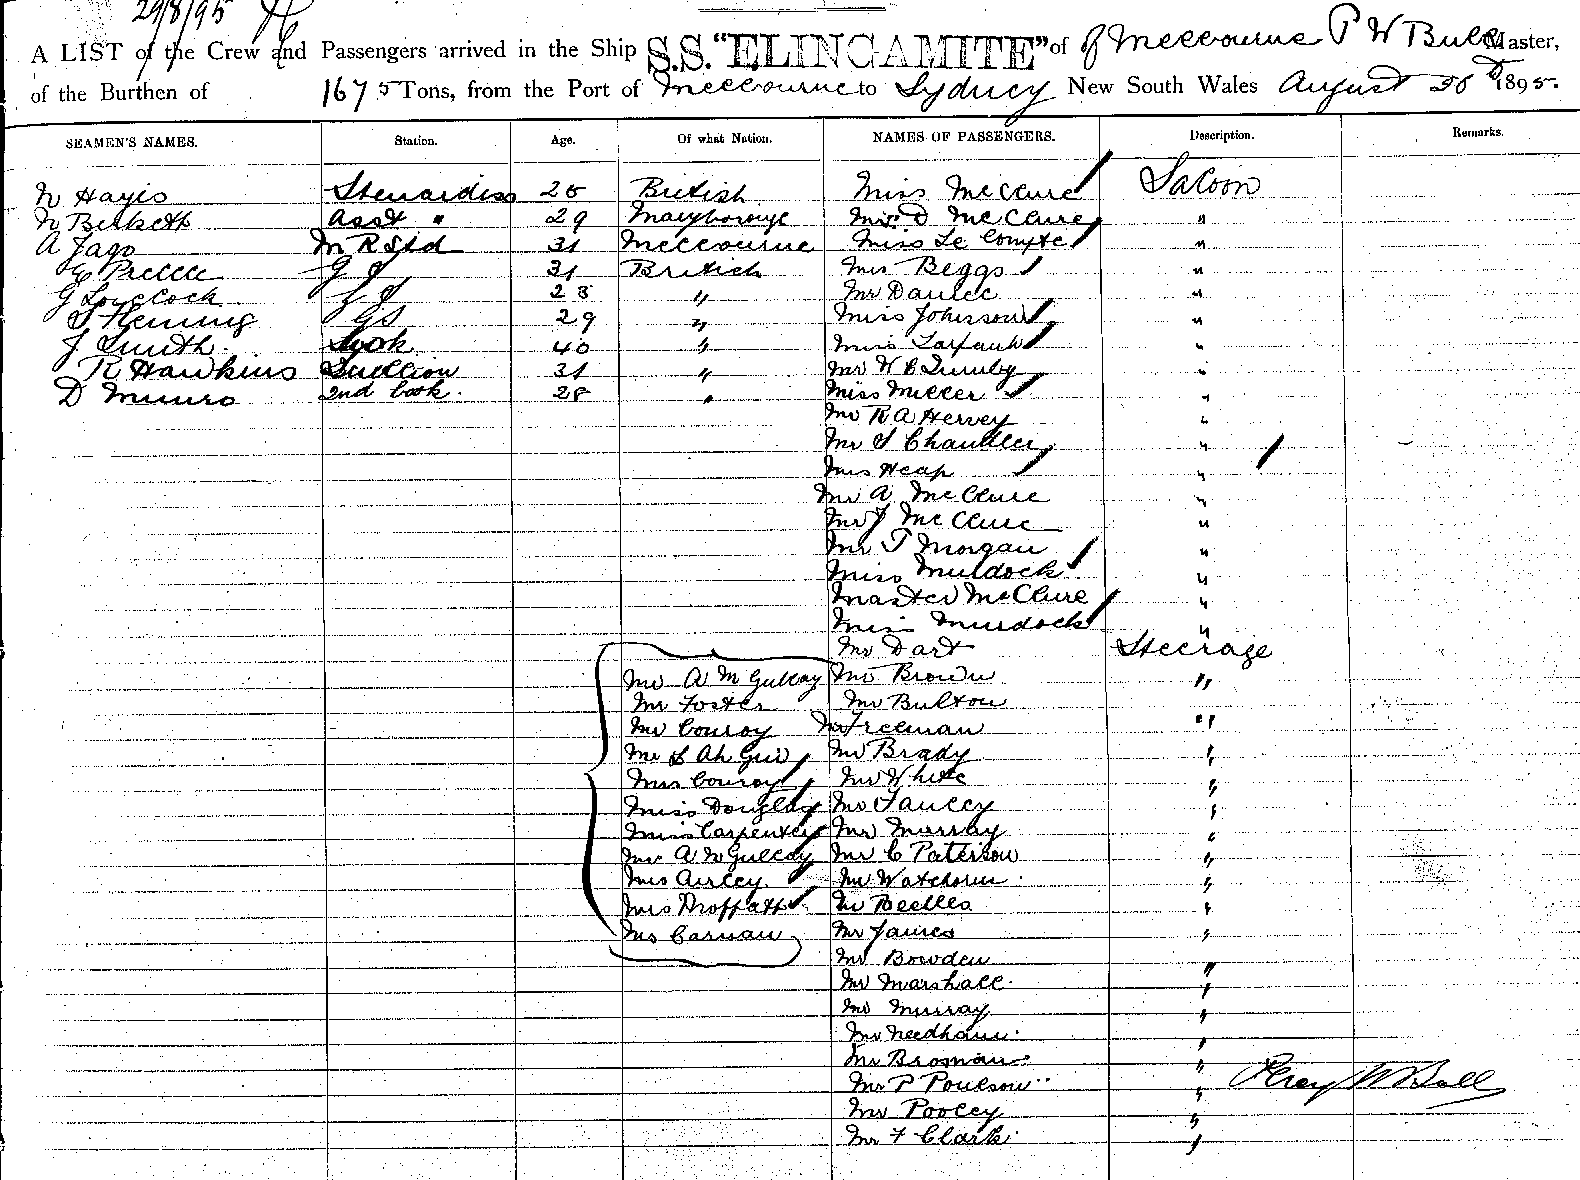 29/8/95
A LIST of the Crew and Passengers arrived in the Ship S.S. "ELINGAMITE" of Melbourne P W Bull Master,
of the Burthen of 1675 Tons, from the Port of Melbourne to Sydney New South Wales August 1895.
SEAMEN'S NAMES. Station. Age. Of what Nation. NAMES OF PASSENGERS. Description. Remarks.
N Hayes Stewardess British Miss McClure Saloon
Asst " 29 Maryborough D McClure "
A Jago M R Std 31 Melbourne Miss Le Compte "
31 British Mrs Beggs "
G Lovelock 23 " Mr "
Fleming GS 29 " Miss Johnson "
J Smith Cook 40 " Miss "
R Hawkins Scullion 31 " Mr W C Quinby "
D Munro 2nd Cook. 28 " Miss Miller "
Mr R A Hervey "
Mr S Chandler "
Mrs Heap "
Mr A McClure "
Mr J McClure "
Mr T Morgan "
Miss Murdock "
Master McClure "
Miss Murdock "
Mr Dart Steerage
Mr A M Mr Brown "
Mr Foster Mr Bulton "
Mr Conroy Mr Freeman "
Mr S Ah Gui Mr Brady "
Mrs Conroy Mr White "
Miss Douglas Mr "
Miss Carpenter Mr Murray "
A M Mr C Paterson "
Mrs Airley Mr Watchorn "
Mrs Moffatt Mr Beetles "
Mrs Carnan Mr James "
Mr Bowden "
Mr Marshall "
Mr Murray "
Mr Needham "
Mr Brosnan "
Mr P Poulson " Percy W Bull
Mr Pooley "
Mr F Clark "